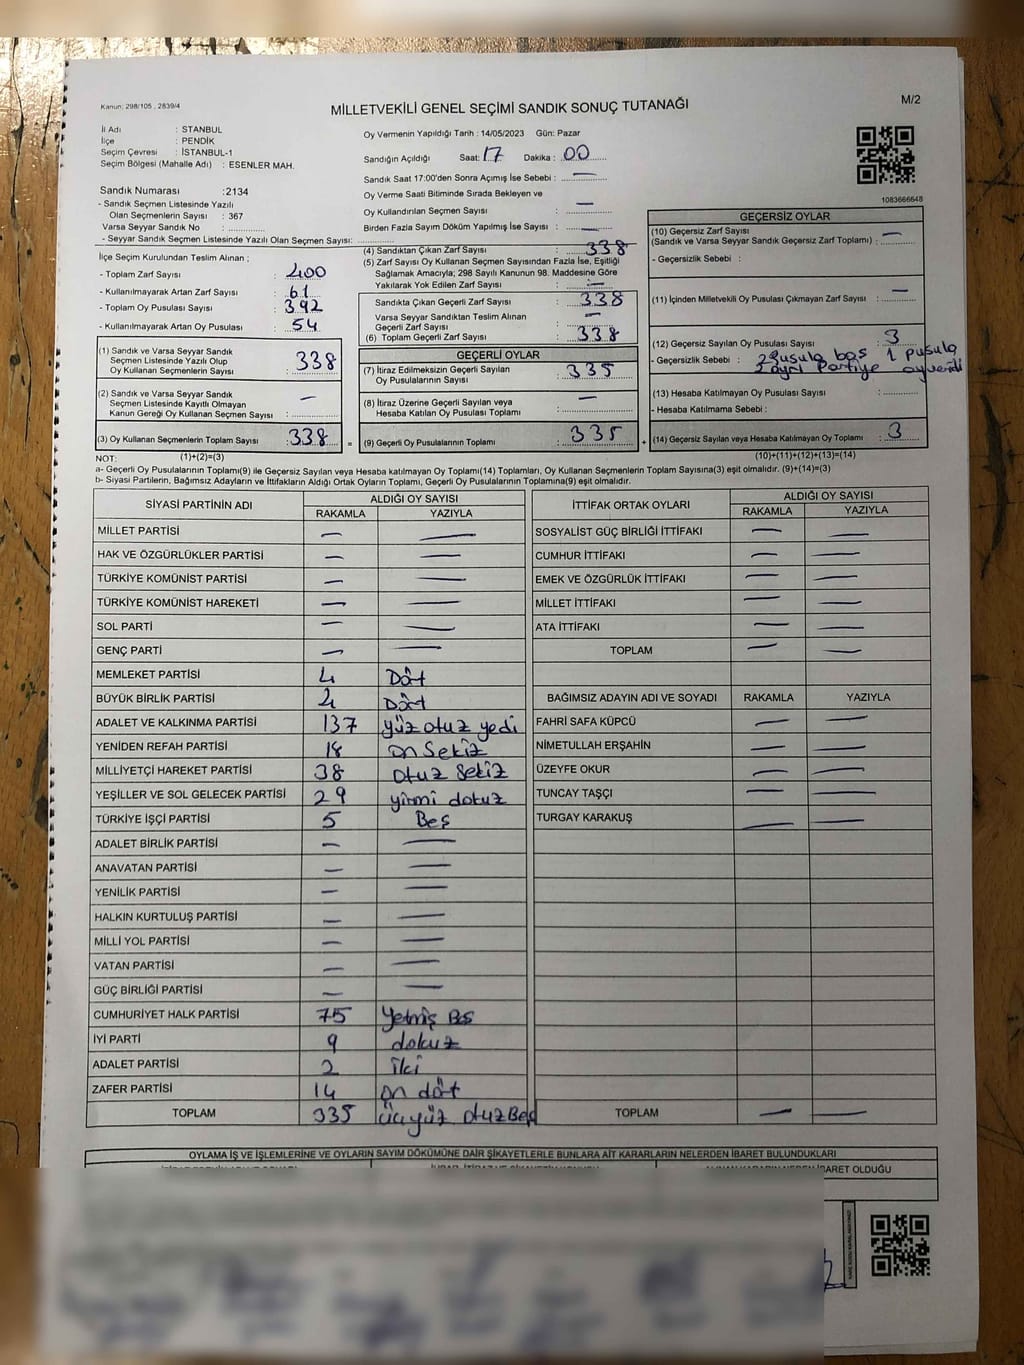 Kanun: 298/105 , 2839/4
MİLLETVEKİLİ GENEL SEÇİMİ SANDIK SONUÇ TUTANAĞI
M/2
İl Adı : STANBUL
İlçe : PENDİK
Seçim Çevresi : İSTANBUL-1
Seçim Bölgesi (Mahalle Adı) : ESENLER MAH.
Oy Vermenin Yapıldığı Tarih : 14/05/2023 Gün: Pazar
Sandığın Açıldığı Saat: 17 Dakika : 00
Sandık Saat 17:00'den Sonra Açımış İse Sebebi : —
Oy Verme Saati Bitiminde Sırada Bekleyen ve
Oy Kullandırılan Seçmen Sayısı : —
Birden Fazla Sayım Döküm Yapılmış İse Sayısı : —
Sandık Numarası :2134
- Sandık Seçmen Listesinde Yazılı
Olan Seçmenlerin Sayısı : 367
Varsa Seyyar Sandık No :
- Seyyar Sandık Seçmen Listesinde Yazılı Olan Seçmen Sayısı:
1083666648
İlçe Seçim Kurulundan Teslim Alınan ;
- Toplam Zarf Sayısı : 400
- Kullanılmayarak Artan Zarf Sayısı : 61
- Toplam Oy Pusulası Sayısı : 392
- Kullanılmayarak Artan Oy Pusulası : 54
(1) Sandık ve Varsa Seyyar Sandık
Seçmen Listesinde Yazılı Olup
Oy Kullanan Seçmenlerin Sayısı : 338
(2) Sandık ve Varsa Seyyar Sandık
Seçmen Listesinde Kayıtlı Olmayan
Kanun Gereği Oy Kullanan Seçmen Sayısı : —
(3) Oy Kullanan Seçmenlerin Toplam Sayısı :338
(4) Sandıktan Çıkan Zarf Sayısı : 338
(5) Zarf Sayısı Oy Kullanan Seçmen Sayısından Fazla İse, Eşitliği
Sağlamak Amacıyla; 298 Sayılı Kanunun 98. Maddesine Göre
Yakılarak Yok Edilen Zarf Sayısı : —
Sandıkta Çıkan Geçerli Zarf Sayısı : 338
Varsa Seyyar Sandıktan Teslim Alınan
Geçerli Zarf Sayısı : —
(6) Toplam Geçerli Zarf Sayısı : 338
GEÇERLİ OYLAR
(7) İtiraz Edilmeksizin Geçerli Sayılan
Oy Pusulalarının Sayısı : 335
(8) İtiraz Üzerine Geçerli Sayılan veya
Hesaba Katılan Oy Pusulası Toplamı : —
= (9) Geçerli Oy Pusulalarının Toplamı : 335
GEÇERSİZ OYLAR
(10) Geçersiz Zarf Sayısı
(Sandık ve Varsa Seyyar Sandık Geçersiz Zarf Toplamı) : —
- Geçersizlik Sebebi :
(11) İçinden Milletvekili Oy Pusulası Çıkmayan Zarf Sayısı : —
(12) Geçersiz Sayılan Oy Pusulası Sayısı : 3
- Geçersizlik Sebebi : 2 Pusula boş 1 pusula
2 ayrı Partiye oyverdi
(13) Hesaba Katılmayan Oy Pusulası Sayısı :
- Hesaba Katılmama Sebebi :
+ (14) Geçersiz Sayılan veya Hesaba Katılmayan Oy Toplamı : 3
NOT: (1)+(2)=(3)
(10)+(11)+(12)+(13)=(14)
a- Geçerli Oy Pusulalarının Toplamı(9) ile Geçersiz Sayılan veya Hesaba Katılmayan Oy Toplamı(14) Toplamları, Oy Kullanan Seçmenlerin Toplam Sayısına(3) eşit olmalıdır. (9)+(14)=(3)
b- Siyasi Partilerin, Bağımsız Adayların ve İttifakların Aldığı Ortak Oyların Toplamı, Geçerli Oy Pusulalarının Toplamına(9) eşit olmalıdır.
SİYASİ PARTİNİN ADI ALDIĞI OY SAYISI
RAKAMLA YAZIYLA
MİLLET PARTİSİ — —
HAK VE ÖZGÜRLÜKLER PARTİSİ — —
TÜRKİYE KOMÜNİST PARTİSİ — —
TÜRKİYE KOMÜNİST HAREKETİ — —
SOL PARTİ — —
GENÇ PARTİ — —
MEMLEKET PARTİSİ 4 Dört
BÜYÜK BİRLİK PARTİSİ 4 Dört
ADALET VE KALKINMA PARTİSİ 137 yüz otuz yedi
YENİDEN REFAH PARTİSİ 18 on Sekiz
MİLLİYETÇİ HAREKET PARTİSİ 38 otuz Sekiz
YEŞİLLER VE SOL GELECEK PARTİSİ 29 yirmi dokuz
TÜRKİYE İŞÇİ PARTİSİ 5 Beş
ADALET BİRLİK PARTİSİ — —
ANAVATAN PARTİSİ — —
YENİLİK PARTİSİ — —
HALKIN KURTULUŞ PARTİSİ — —
MİLLİ YOL PARTİSİ — —
VATAN PARTİSİ — —
GÜÇ BİRLİĞİ PARTİSİ — —
CUMHURİYET HALK PARTİSİ 75 Yetmiş Beş
İYİ PARTİ 9 dokuz
ADALET PARTİSİ 2 iki
ZAFER PARTİSİ 14 on dört
TOPLAM 335 üçyüz otuzBeş
İTTİFAK ORTAK OYLARI ALDIĞI OY SAYISI
RAKAMLA YAZIYLA
SOSYALİST GÜÇ BİRLİĞİ İTTİFAKI — —
CUMHUR İTTİFAKI — —
EMEK VE ÖZGÜRLÜK İTTİFAKI — —
MİLLET İTTİFAKI — —
ATA İTTİFAKI — —
TOPLAM — —
BAĞIMSIZ ADAYIN ADI VE SOYADI RAKAMLA YAZIYLA
FAHRİ SAFA KÜPCÜ — —
NİMETULLAH ERŞAHİN — —
ÜZEYFE OKUR — —
TUNCAY TAŞÇI — —
TURGAY KARAKUŞ — —
TOPLAM — —
OYLAMA İŞ VE İŞLEMLERİNE VE OYLARIN SAYIM DÖKÜMÜNE DAİR ŞİKAYETLERLE BUNLARA AİT KARARLARIN NELERDEN İBARET BULUNDUKLARI
İBARET OLDUĞU